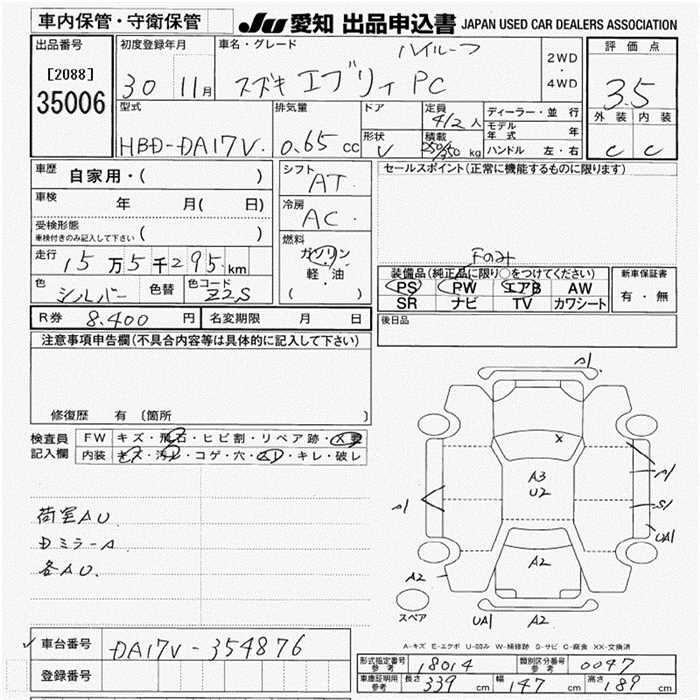 車内保管・守衛保管
JU 愛知 出品申込書 JAPAN USED CAR DEALERS ASSOCIATION
出品番号
[2088]
35006
初度登録年月
30 11月
車名・グレード
ハイルーフ
スズキ エブリィ PC
2WD
・
4WD
評価点
3.5
外装 内装
C C
型式
HBD-DA17V
排気量
0.65 cc
ドア
形状
V
定員
4/2 人
積載
250/350 kg
ディーラー・並行
モデル年式 年
ハンドル 左・右
車歴
自家用・( )
車検
年 月( 日)
受検形態
車検付きのみ記入して下さい ( )
走行
15万5千295km
色
シルバー
色替
色コード
Z2S
シフト
AT
冷房
AC
燃料
ガソリン
・
軽・油
( )
セールスポイント(正常に機能するものに限ります)
Fのみ
装備品(純正品に限り○をつけてください)
PS PW エアB AW
SR ナビ TV カワシート
新車保証書
有・無
R券 8,400 円
名変期限 月 日
後日品
注意事項申告欄(不具合内容等は具体的に記入して下さい)
修復歴 有〔箇所 〕
検査員
記入欄
FW キズ・飛石・ヒビ割・リペア跡・X要
内装 キズ・汚レ・コゲ・穴・ムレ・キレ・破レ
荷室AU
DミラーA
各AU.
A1
X
A3
U2
A1
A1
S1
UA1
A2
A2
スペア
UA1
A2
A-キズ E-エクボ U-凹み W-補修跡 S-サビ C-腐食 XX-交換済
車台番号 DA17V-354876
登録番号
形式指定番号
参考
18014
類別区分番号
参考
0047
車庫証明用
参考
長さ 339 cm
幅 147 cm
高さ 189 cm